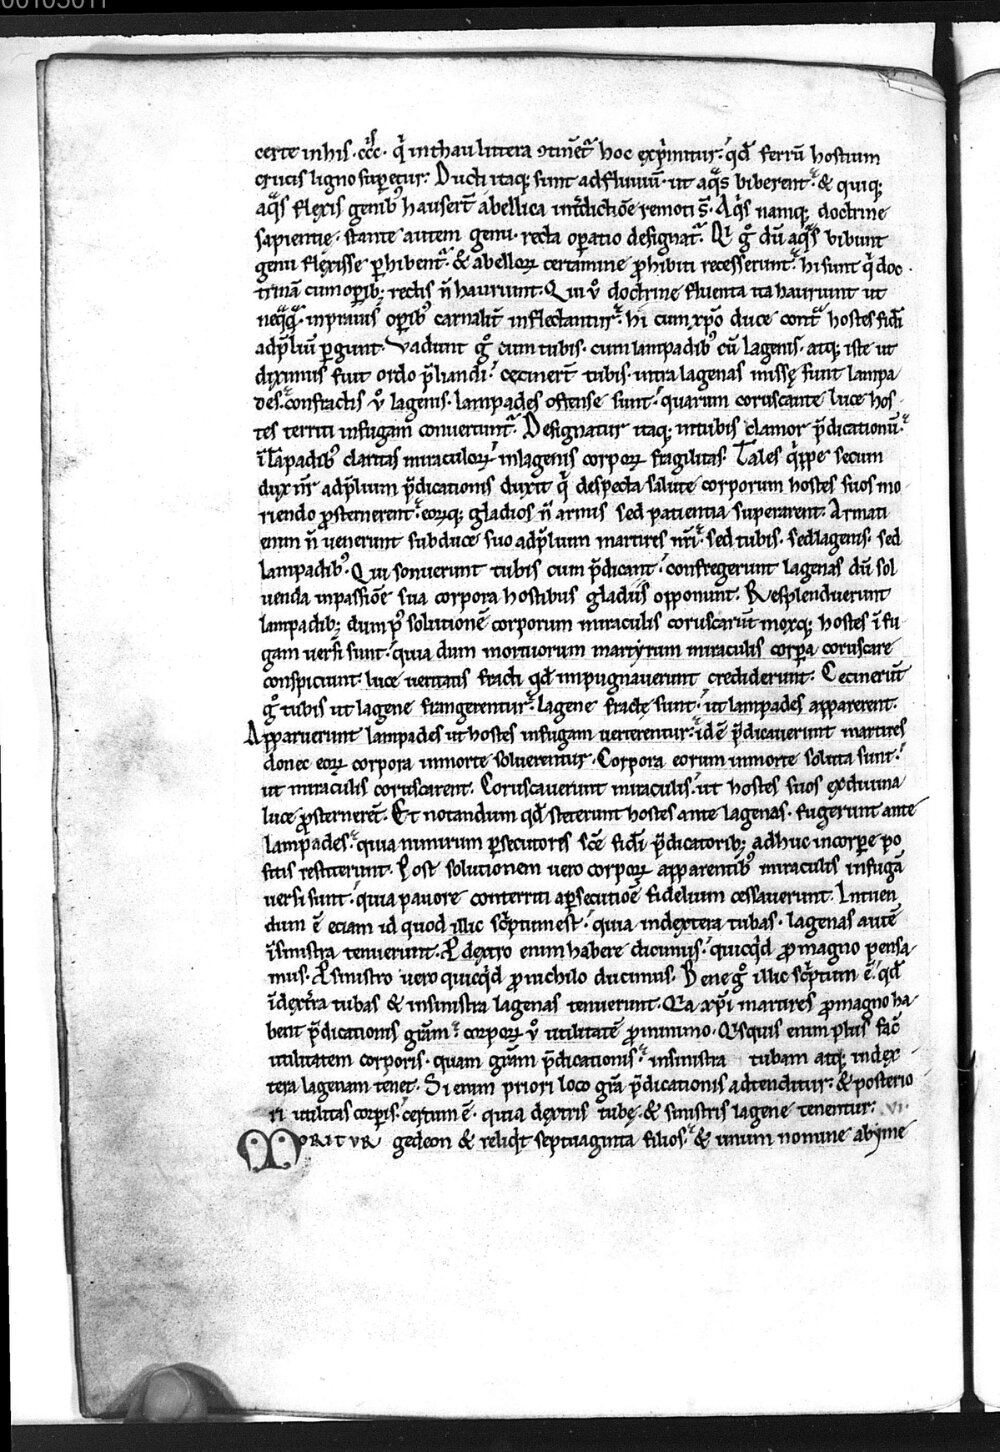 00105011
certe in his .ccc.is q̄ in thau littera ꝯtinet᷑ hoc exp̄mitur. qd̄ ferrū hostium
crucis ligno superetur. Ducti itaq; sunt ad fluuiū. ut aq̄s biberent. & quiq;
aq̄s flexis genib; hauser̄t a bellica int̄dictiōe remoti s̄. Aq̄s namq; doctrine
sapientię. stante autem genu. recta oꝑatio designat᷑. Qui gͦ dū aq̄s bibunt
genu flexisse ꝑhibent᷑. & a belloꝝ certamine ꝓhibiti recesserunt. hi sunt q̄ doc
trinā cum oꝑib; rectis n̄ hauriunt. Qui ů doctrine fluenta ita hauriunt ut
neq̄q̄. in prauis oꝑib; carnalit̄ inflectantur. hi cum xp̄o duce cont̄ hostes fidi
ad p̄liū ꝑgunt. Vadunt gͦ cum tubis. cum lampadib; cū lagenis. atq; iste ut
diximus fuit ordo p̄liandi. cecinert̄ tubis. intra lagenas missę sunt lampa
des. confractis ů lagenis. lampades ostense sunt. quarum coruscante luce hos
tes territi in fugam conuertunt᷑. Designatur itaq; in tubis clamor p̄dicationū.
ī lāpadib; claritas miraculoꝝ in lagenis corpoꝝ fragilitas. Tales q̄ppe secum
dux nr̄ ad p̄lium p̄dicationis duxit q̄ despecta salute corporum hostes suos mo
riendo ꝓsternerent. eoꝝq; gladios n̄ armis sed patientia superarent. Armati
enim n̄ uenerunt sub duce suo ad p̄lium martires nr̄i. sed tubis. sed lagenis. sed
lampadib;. Qui sonuerunt tubis cum p̄dicant. confregerunt lagenas dū sol
uenda in passiōe sua corpora hostibus gladiis opponunt. Resplenduerunt
lampadib; dum p᷒ solutionē corporum miraculis coruscarūt moxq; hostes ī fu
gam uersi sunt. quia dum mortuorum martyrum miraculis corpa coruscare
conspiciunt. luce ueritatis fracti qd̄ impugnauerunt crediderunt. Cecinerūt
gͦ tubis ut lagene frangerentur. lagene fractę sunt. ut lampades apparerent.
Apparuerunt lampades ut hostes in fugam uerterentur. idē p̄dicauerunt martires
donec eoꝝ corpora in morte soluerentur. Corpora eorum in morte soluta sunt.
ut miraculis coruscarent. Coruscauerunt miraculis. ut hostes suos ex diuina
luce ꝓsternerēt. Et notandum qd̄ steterunt hostes ante lagenas. fugerunt ante
lampades. quia nimirum ꝑsecutores scē fidi p̄dicatorib; adhuc in corpore po
sitis restiterunt. Post solutionem uero corpoꝝ apparentib; miraculis in fugā
uersi sunt. quia pauore conterriti a ꝑsecutiōe fidelium cessauerunt. Intuen
dum ē eciam id quod illic sc̄ptum est. quia in dextera tubas. lagenas autē
ī sinistra tenuerunt. P dextro enim habere dicimus. quicq̄d ꝓ magno pensa
mus. P sinistro uero quicq̄d ꝓ nichilo ducimus. Bene gͦ illic sc̄ptum ē. qd̄
ī dext̄ra tubas & in sinistra lagenas tenuerunt. Qa xp̄i martires ꝓ magno ha
bent p̄dicationis gr̄am. corpoꝝ ů utilitatē ꝓ minimo. Qisquis enim plus fac̄
utilitatem corporis. quam gr̄am p̄dicationis. in sinistra tubam atq; in dex
tera lagenam tenet. Si enim priori loco gr̄a p̄dicationis adtenditur. & posterio
ri utilitas corpis. certum ē. quia dextris tubę. & sinistris lagene tenentur. .VI.
MORITVR gedeon & reliq̄t septuaginta filios. & unum nomine abyme